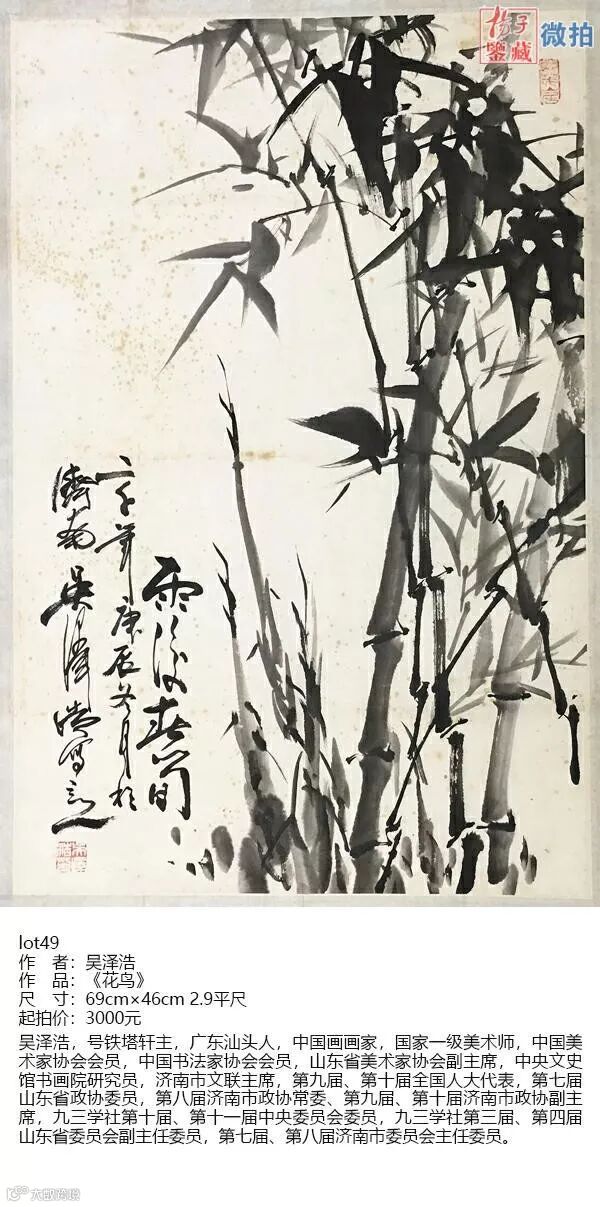 揚子
鑒藏
微拍
雨後春筍
二千年庚辰冬月於
濟南吳澤浩寫
lot49
作 者：吴泽浩
作 品：《花鸟》
尺 寸：69cm×46cm 2.9平尺
起拍价：3000元
吴泽浩，号铁塔轩主，广东汕头人，中国画画家，国家一级美术师，中国美
术家协会会员，中国书法家协会会员，山东省美术家协会副主席，中央文史
馆书画院研究员，济南市文联主席，第九届、第十届全国人大代表，第七届
山东省政协委员，第八届济南市政协常委、第九届、第十届济南市政协副主
席，九三学社第十届、第十一届中央委员会委员，九三学社第三届、第四届
山东省委员会副主任委员，第七届、第八届济南市委员会主任委员。
大欧跨境